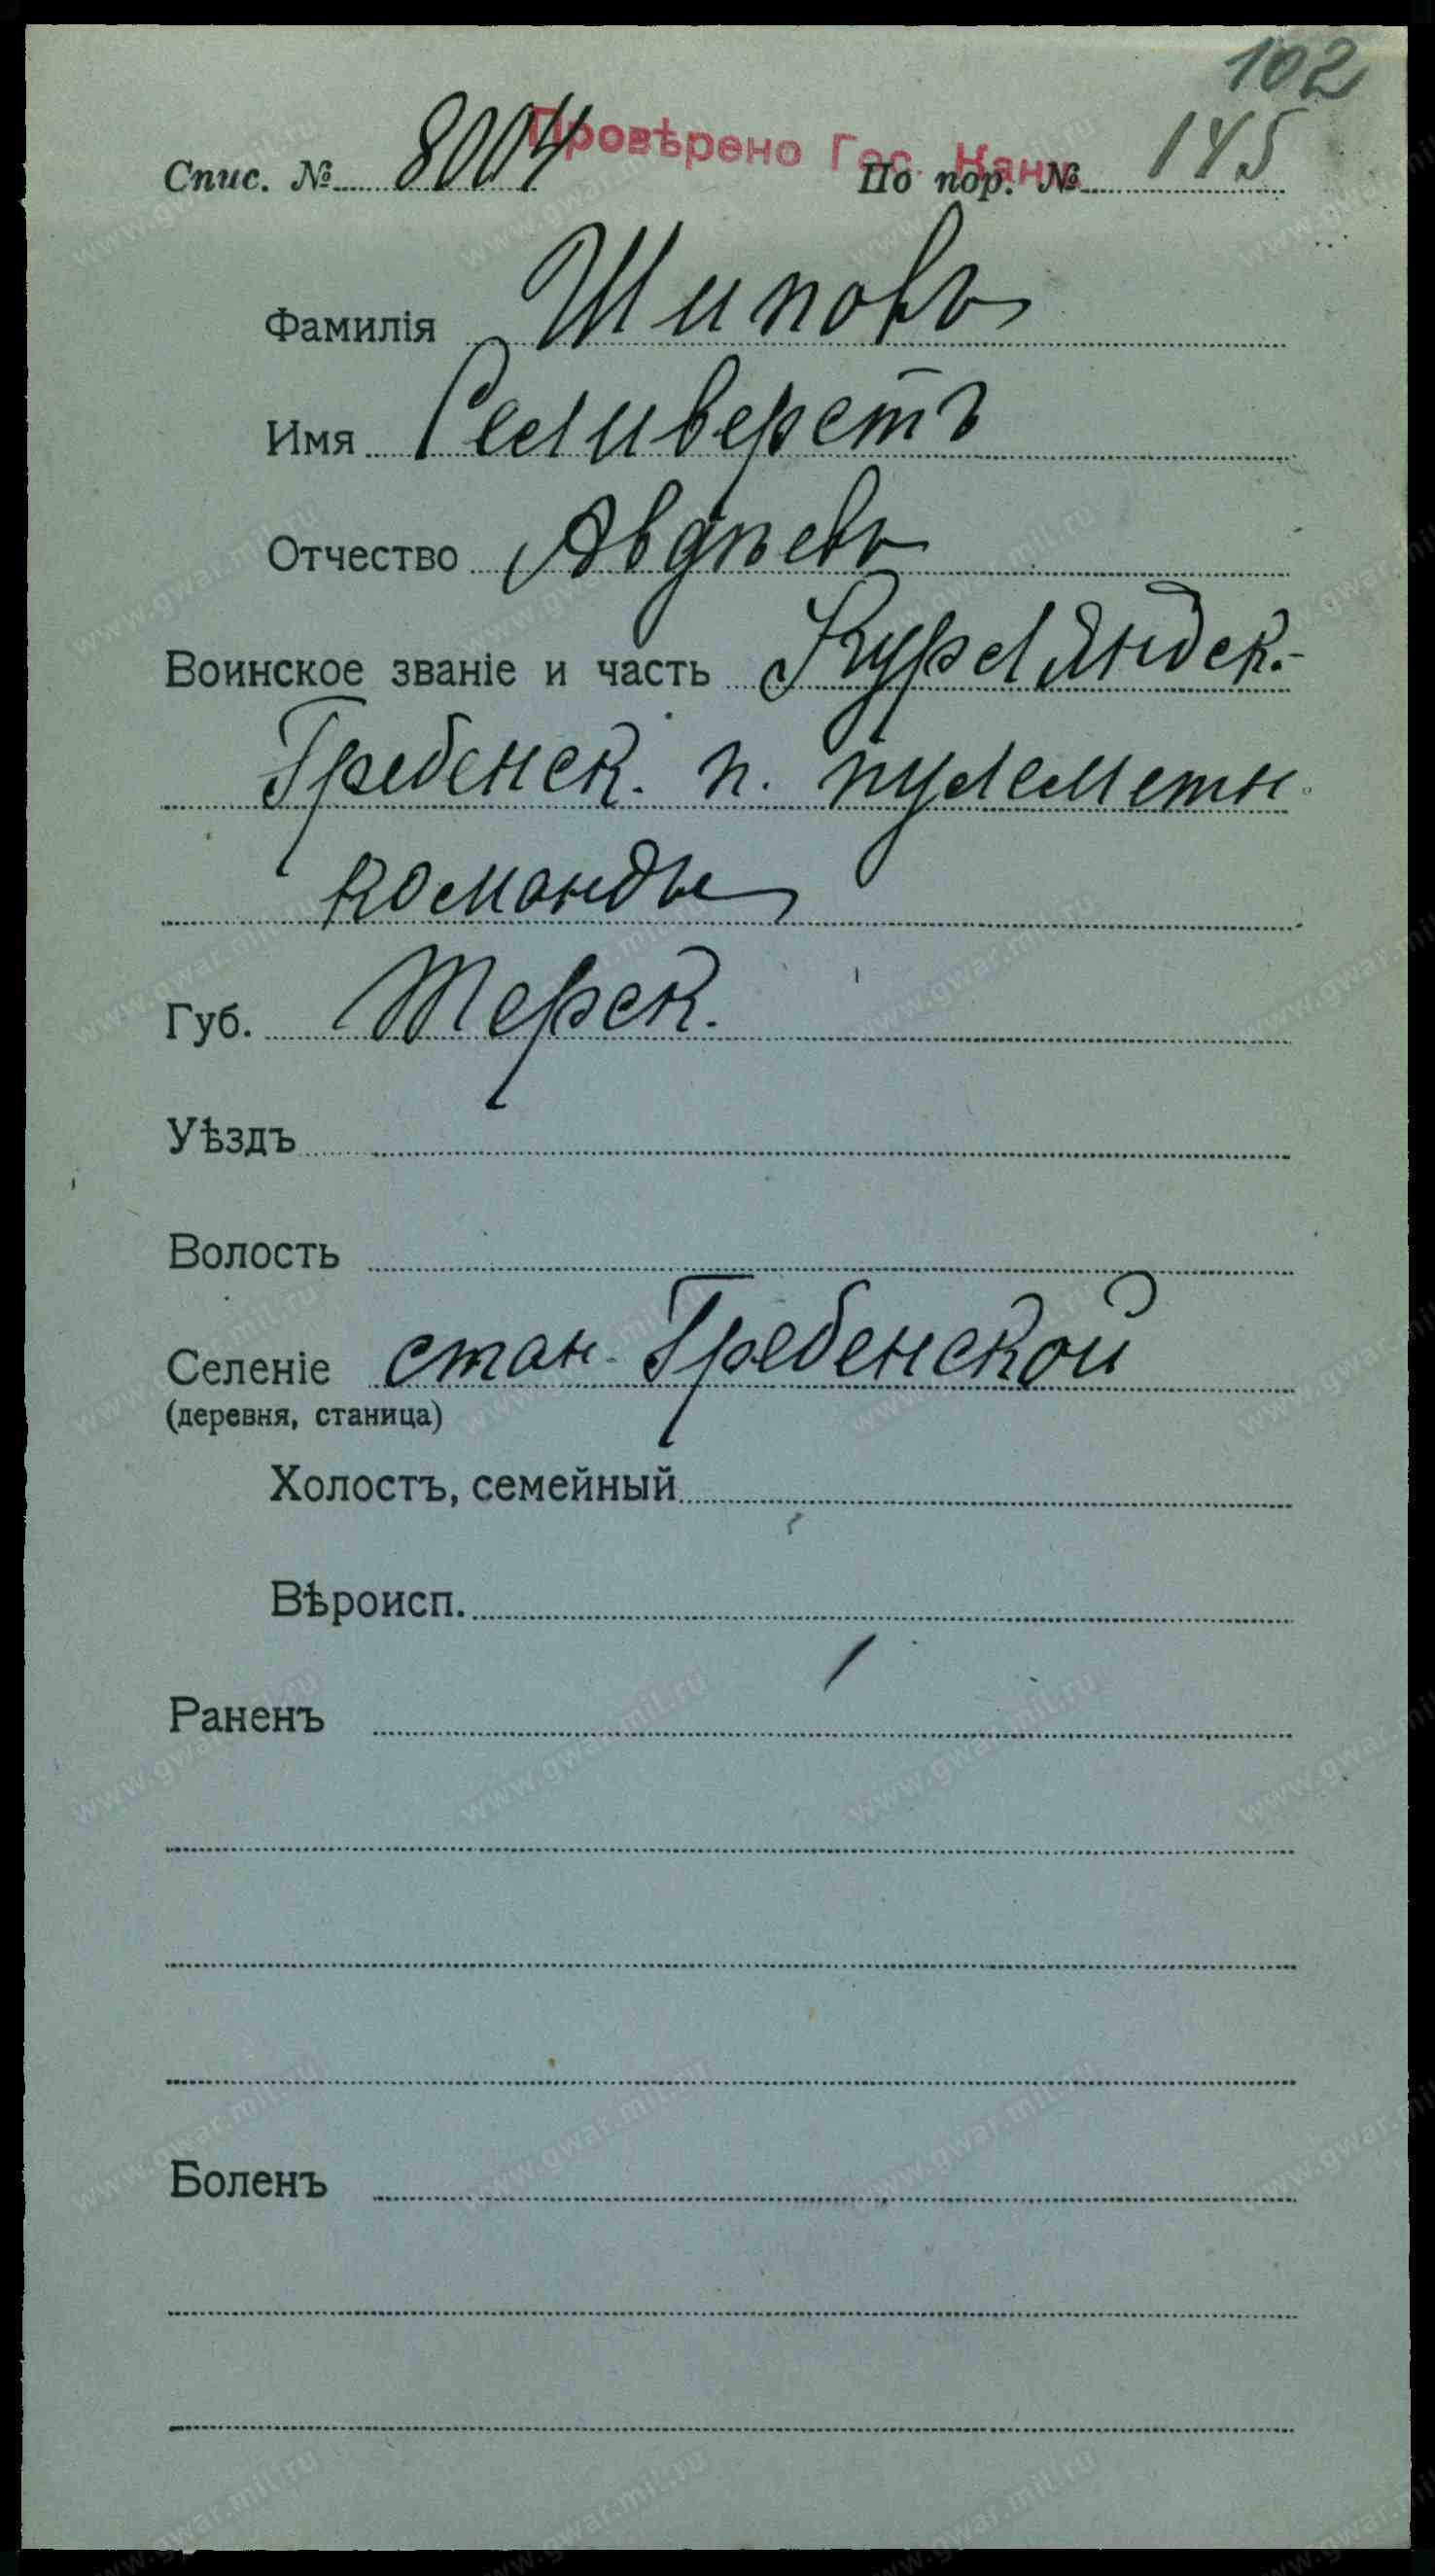 102
Провѣрено Гос. Канц.
Спис. № 8004 По пор. № 145
Фамилія Шиповъ
Имя Селиверстъ
Отчество Авдѣевъ
Воинское званіе и часть Курляндск.-
Гребенск. п. пулеметн.
команды
Губ. Терск.
Уѣздъ
Волость
Селеніе стан. Гребенской
(деревня, станица)
Холостъ, семейный
Вѣроисп.
Раненъ
Боленъ
www.gwar.mil.ru